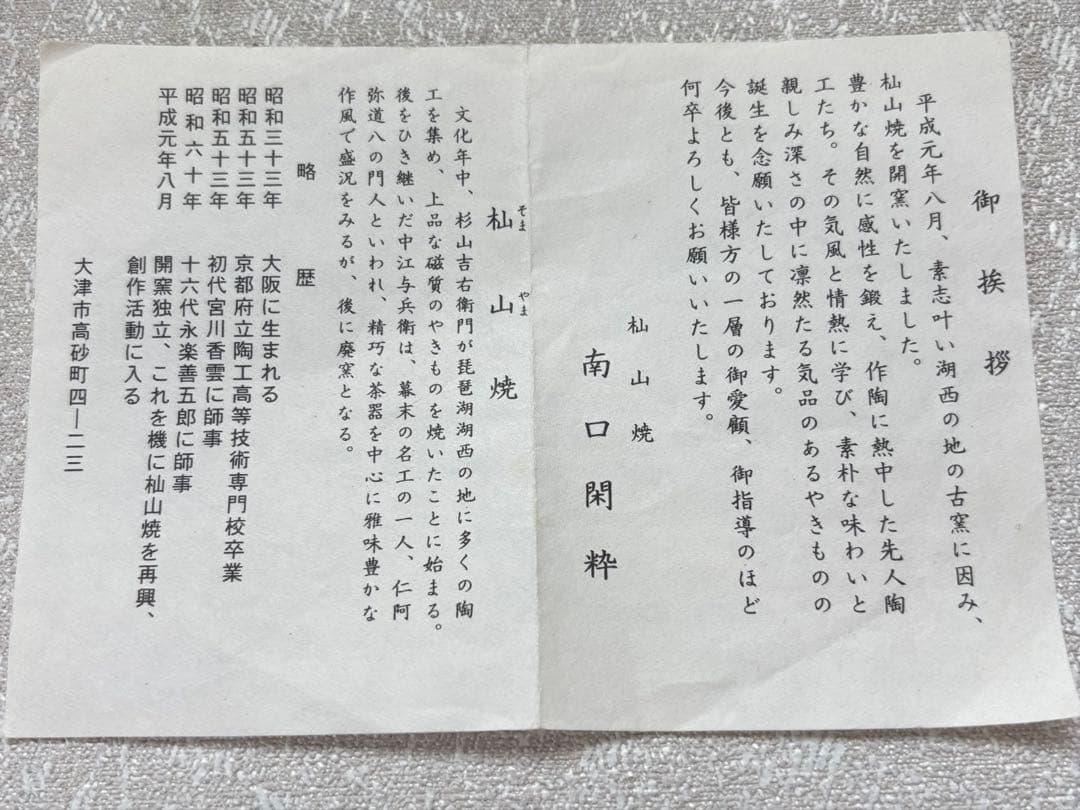 御挨拶
平成元年八月、素志叶い湖西の地の古窯に因み、
杣山焼を開窯いたしました。
豊かな自然に感性を鍛え、作陶に熱中した先人陶
工たち。その気風と情熱に学び、素朴な味わいと
親しみ深さの中に凛然たる気品のあるやきものの
誕生を念願いたしております。
今後とも、皆様方の一層の御愛顧、御指導のほど
何卒よろしくお願いいたします。
杣山焼
南口閑粋
杣山焼
そま やま
文化年中、杉山吉右衛門が琵琶湖湖西の地に多くの陶
工を集め、上品な磁質のやきものを焼いたことに始まる。
後をひき継いだ中江与兵衛は、幕末の名工の一人、仁阿
弥道八の門人といわれ、精巧な茶器を中心に雅味豊かな
作風で盛況をみるが、後に廃窯となる。
略歴
昭和三十三年 大阪に生まれる
昭和五十三年 京都府立陶工高等技術専門校卒業
昭和五十三年 初代宮川香雲に師事
昭和六十年 十六代永楽善五郎に師事
平成元年八月 開窯独立、これを機に杣山焼を再興、
創作活動に入る
大津市高砂町四―二三